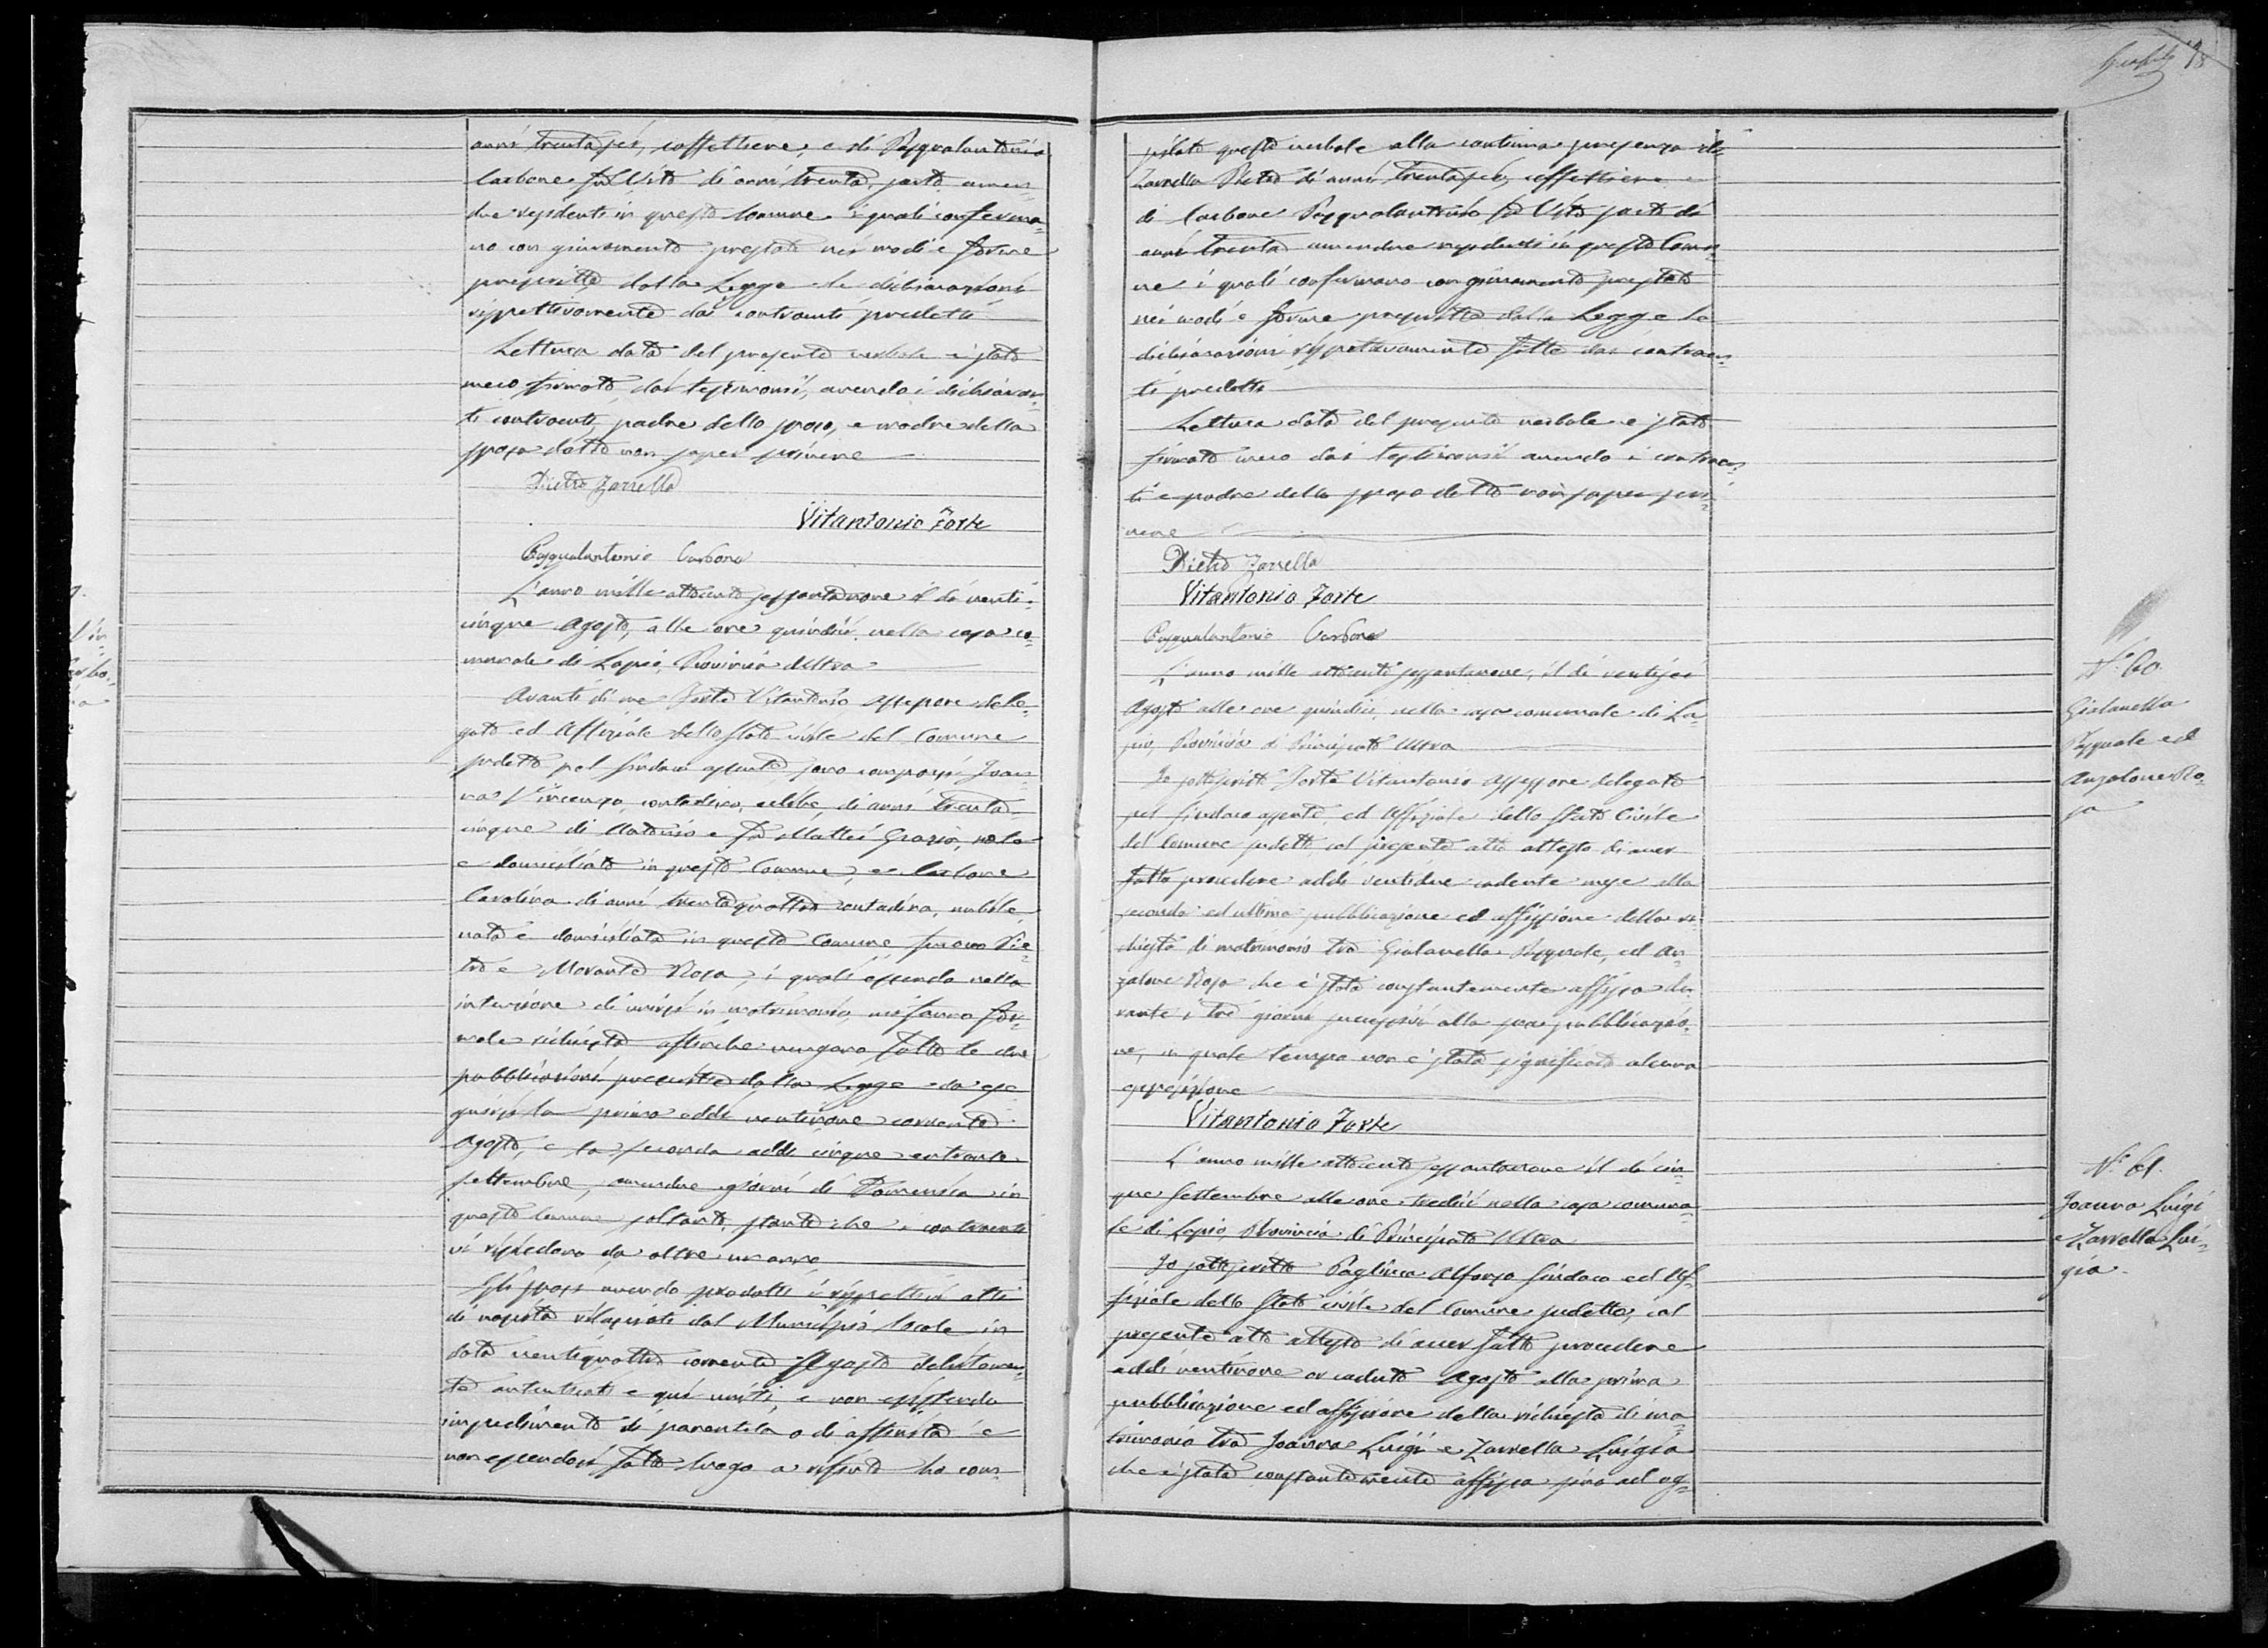 anni trentasei, caffettiere, e di Pasqualantonio
Carbone fu Vito di anni trenta, sarto amen-
due residenti in questo Comune i quali conferma-
no con giuramento prestato nei modi e forme
prescritte dalla Legge le dichiarazioni
rispettivamente dai contraenti predetti
Lettura data del presente verbale è stato
meco firmato dai testimonii, avendo i dichiaran-
ti contraenti, padre dello sposo, e madre della
sposa detto non saper scrivere
Pietro Zarrella
Vitantonio Forte
Pasqualantonio Carbone
L'anno mille ottocento sessantanove il dì venti-
cinque Agosto, alle ore quindici nella casa co-
munale di Lapio, Provincia Ultra
Avanti di me Forte Vitantonio Assessore dele-
gato ed Uffiziale dello Stato civile del Comune
sudetto pel Sindaco assente sono comparsi Joan-
na Vincenzo, contadino, celibe, di anni trenta
cinque di Antonio e fu Mattei Grazia, nato
e domiciliato in questo Comune, e Carbone
Carolina di anni trentaquattro contadina, nubile
nata e domiciliata in questo Comune, furono Pie-
tro e Morante Rosa, i quali essendo nella
intenzione di unirsi in matrimonio, mi fanno for-
male richiesta affinchè vengano fatte le due
pubblicazioni prescritte dalla Legge da ese-
guirsi la prima addi ventinove corrente
Agosto, e la seconda addi cinque entrante
Settembre, amendue giorni di Domenica in
questo Comune soltanto, stante che i contraenti
vi risiedono da oltre un anno
Gli sposi avendo prodotti i rispettivi atti
di nascita rilasciati dal Municipio locale in
data ventiquattro corrente Agosto debitamen-
te autenticati e qui uniti, e non esistendo
impedimento di parentela o di affinità e
non essendovi fatto luogo a rifiuto ho com-
pilato questo verbale alla continua presenza di
Zarrella Pietro di anni trentasei, caffettiere e
di Carbone Pasqualantonio fu Vito sarto di
anni trenta amendue residenti in questo Comu-
ne i quali confermano con giuramento prestato
nei modi e forme prescritte dalla Legge le
dichiarazioni rispettivamente fatte dai contraen-
ti predetti
Lettura data del presente verbale è stato
firmato meco dai testimonii avendo i contraen-
ti e padre dello sposo detto non saper scri-
vere
Pietro Zarrella
Vitantonio Forte
Pasqualantonio Carbone
N.° 60
Gialanella
Pasquale ed
Anzalone Ro-
sa
L'anno mille ottocento sessantanove, il dì ventisei
Agosto alle ore quindici, nella casa comunale di La-
pio, Provincia di Principato Ultra
Io sottoscritto Forte Vitantonio Assessore delegato
pel Sindaco assente, ed Uffiziale dello Stato Civile
del Comune sudetto col presente atto attesto di aver
fatto procedere addi ventidue cadente mese alla
seconda ed ultima pubblicazione ed affissione della ri-
chiesta di matrimonio tra Gialanella Pasquale, ed An-
zalone Rosa che è stata constantemente affissa du-
rante i tre giorni successivi alla sua pubblicazio-
ne, in quale tempo non è stata significata alcuna
opposizione
Vitantonio Forte
N.° 61.
Joanna Luigi
e Zarrella Lui-
gia
L'anno mille ottocento sessantanove il dì cin-
que Settembre alle ore tredici nella casa comuna-
le di Lapio, Provincia di Principato Ultra
Io sottoscritto Paglinca Alfonso Sindaco ed Uf-
fiziale dello Stato civile del Comune sudetto, col
presente atto attesto di aver fatto procedere
addi ventinove or caduto Agosto alla prima
pubblicazione ed affissione della richiesta di ma-
trimonio tra Joanna Luigi e Zarrella Luigia
che è stata constantemente affissa sino ad og-